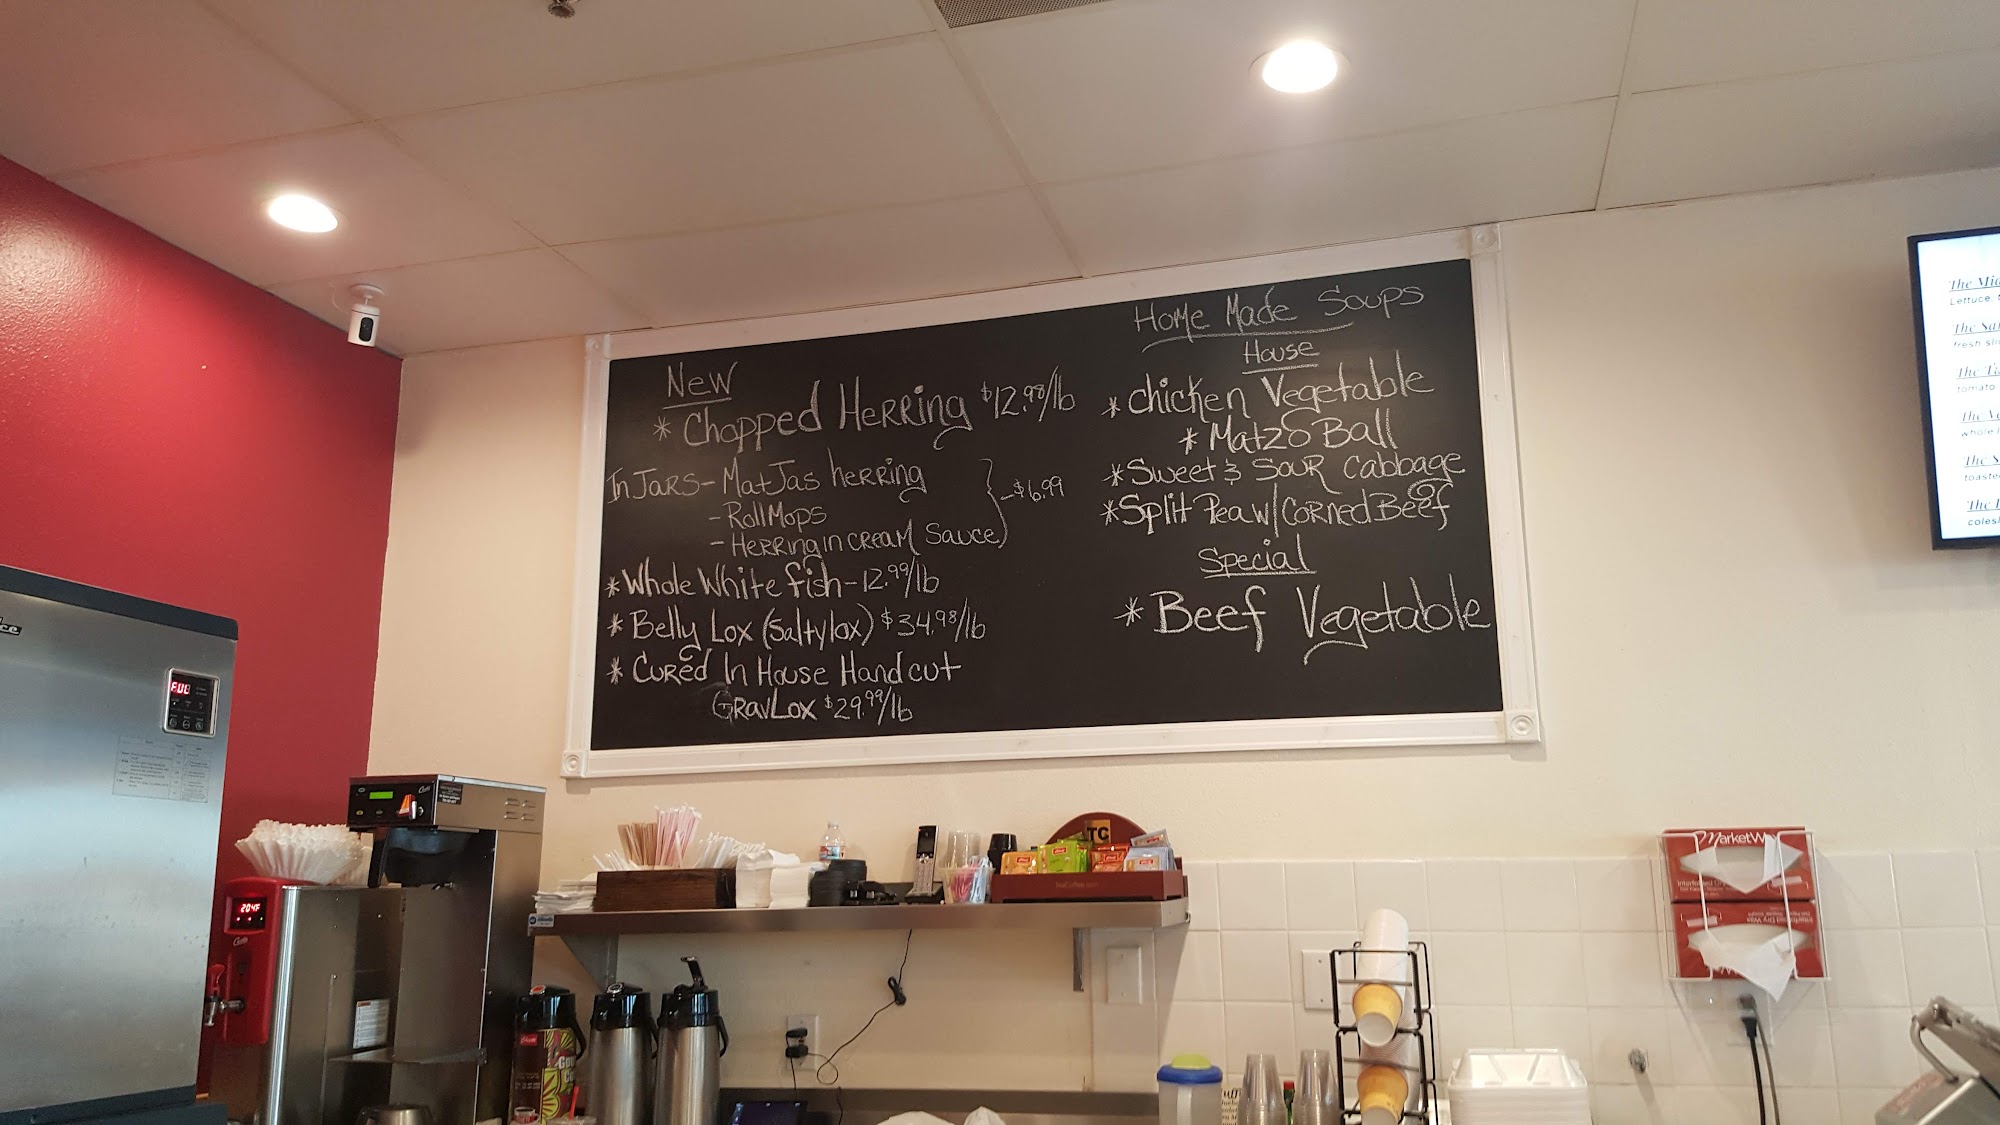 New
* Chopped Herring $12.98/lb
In Jars - MatJas herring
- RollMops
- Herring in cream Sauce
} - $6.99
* Whole White fish - 12.99/lb
* Belly Lox (Salty lox) $34.98/lb
* Cured In House Hand cut
GravLox $29.99/lb
Home Made Soups
House
* chicken Vegetable
* Matzo Ball
* Sweet & Sour Cabbage
* Split Pea w/ Corned Beef
Special
* Beef Vegetable
The
Lettuce
The
fresh
The
tomato
The
The
The
204F
TC
Interfolded Dry Wax